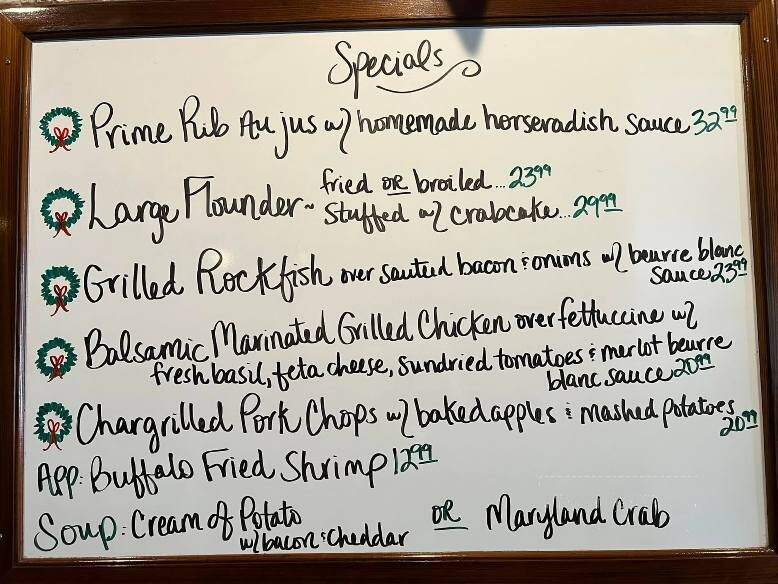 Specials
Prime Rib Au jus w/ homemade horseradish sauce 32⁹⁹
Large Flounder ~ fried OR broiled... 23⁹⁹
Stuffed w/ crabcake... 29⁹⁹
Grilled Rockfish over sauteed bacon & onions w/ beurre blanc
sauce 23⁹⁹
Balsamic Marinated Grilled Chicken over fettuccine w/
fresh basil, feta cheese, sundried tomatoes & merlot beurre
blanc sauce 20⁹⁹
Chargrilled Pork Chops w/ baked apples & mashed potatoes
20⁹⁹
APP: Buffalo Fried Shrimp 12⁹⁹
Soup: Cream of Potato OR Maryland Crab
w/ bacon & cheddar